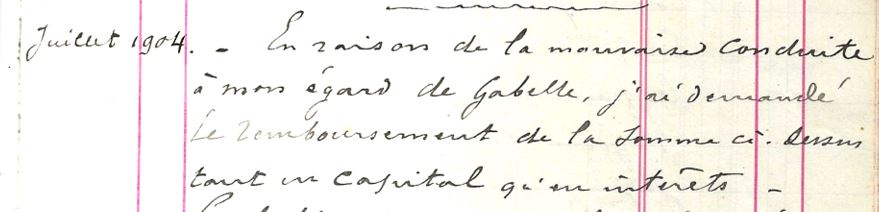 Juillet 1904. - En raison de la mauvaise conduite
à mon égard de Gabelle, j'ai demandé
le remboursement de la somme ci-dessus
tant en capital qu'en intérêts -